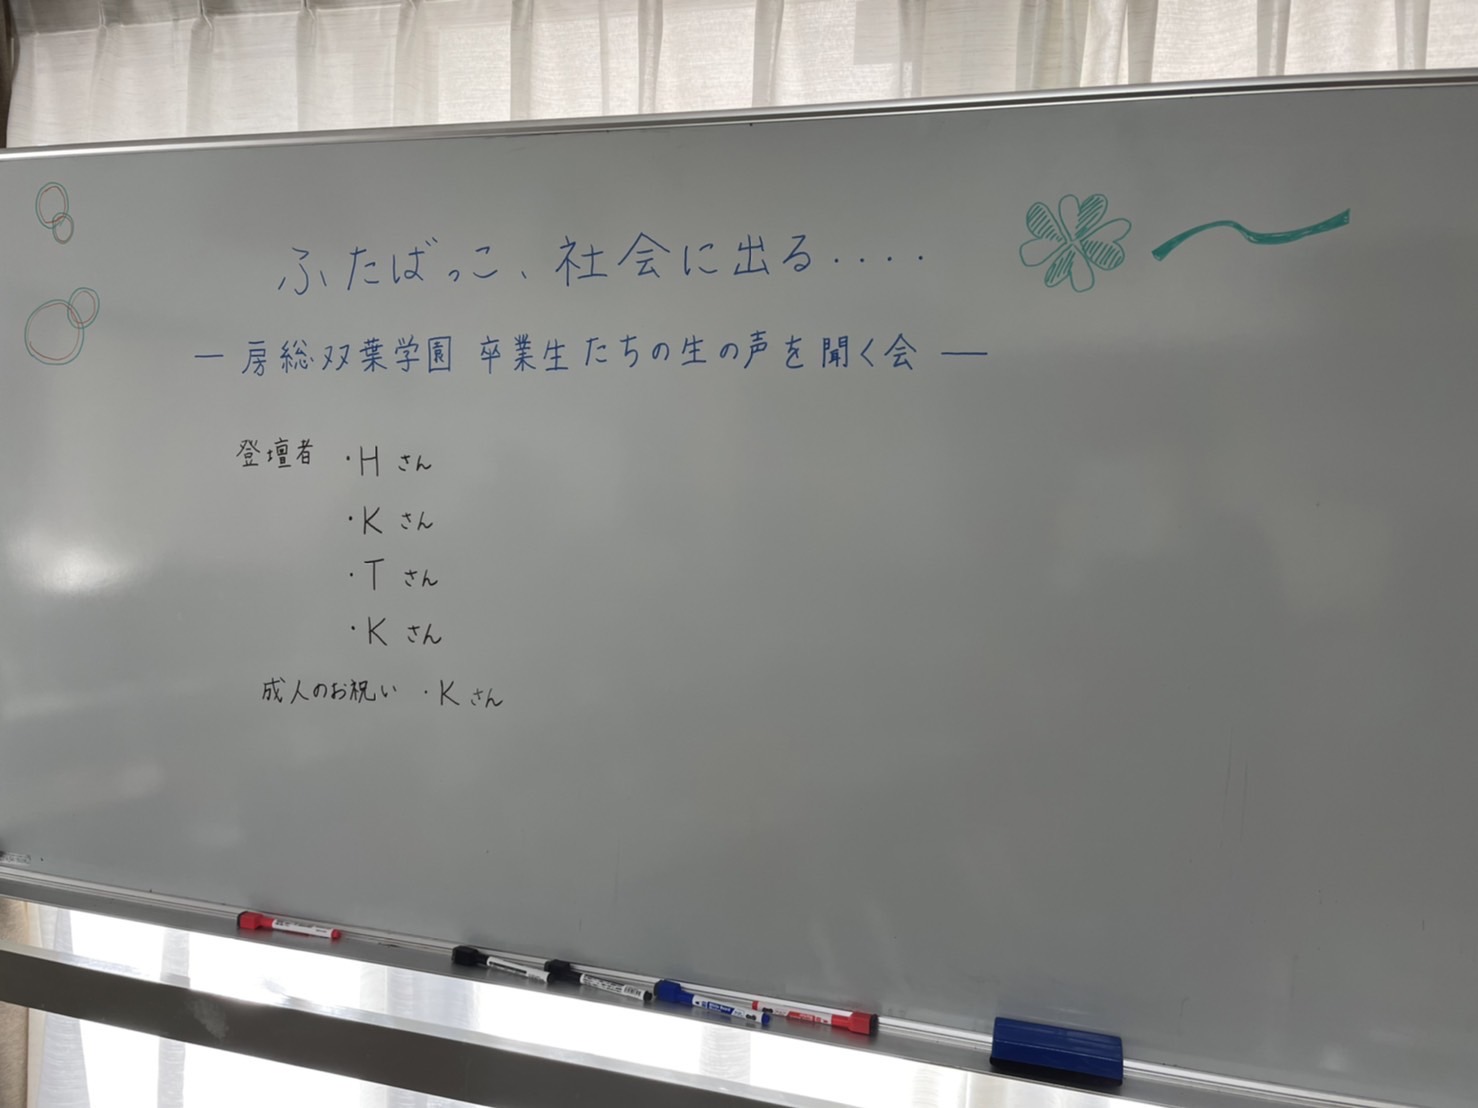 ふたばっこ、社会に出る....
― 房総双葉学園 卒業生たちの生の声を聞く会 ―
登壇者 ・Hさん
・Kさん
・Tさん
・Kさん
成人のお祝い ・Kさん